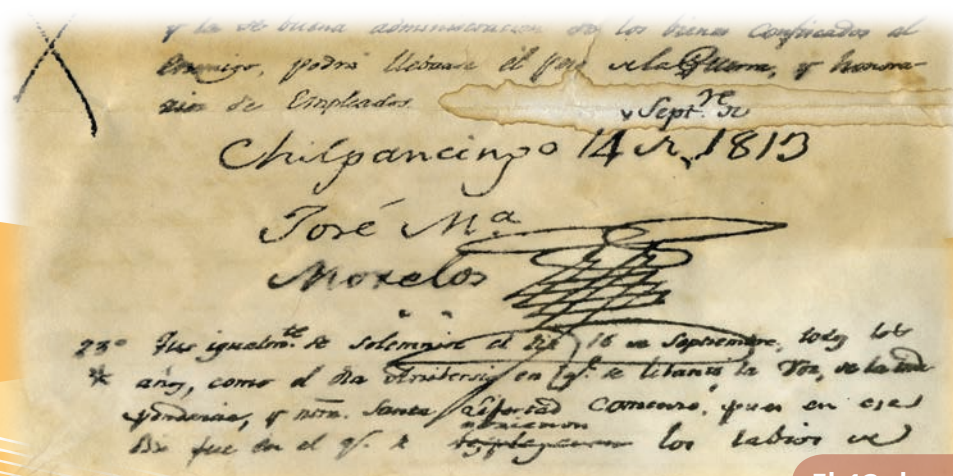 y la de buena administracion de los bienes confiscados al
Enemigo, podrá llebarse el peso de la Guerra, y honora-
rios de Empleados.
Septre. de
Chilpancingo 14 de 1813
José Ma.
Morelos
23o Que igualmte. se solemnise el dia 16 de Septiembre, todos los
* años, como el dia Anibersario en q. se lebantó la Voz, de la Inde
pendencia, y ntra. Santa Libertad comenzó, pues en ese
Dia fue en el q. se
abrieron
los labios de
El 16 de